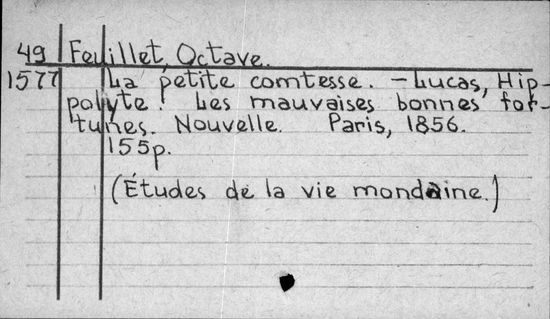 49 Feuillet, Octave.
1577 La petite comtesse. - Lucas, Hip-
polyte. Les mauvaises bonnes for-
tunes. Nouvelle. Paris, 1856.
155p.
(Études de la vie mondaine.)